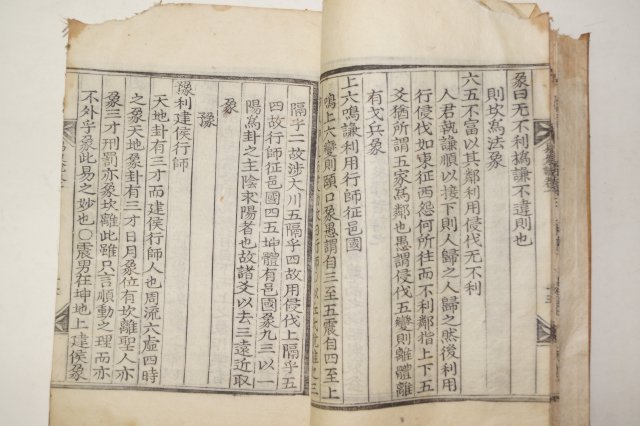 象曰无不利撝謙不違則也
則坎爲法象
六五不富以其鄰利用侵伐无不利
人君執謙順以接下則人歸之人歸之然後利用
行侵伐如東征西怨何所往而不利鄰指上下五
爻猶所謂五家爲鄰也愚謂侵伐五變則離體離
有戈兵象
上六鳴謙利用行師征邑國
鳴上六變則頤口象愚謂自三至五震自四至上
隔乎二故涉大川五隔乎四故用侵伐上隔乎五
四故行師征邑國四五坤體有邑國象九三以一
陽爲卦之主陰求陽者也故諸爻以去三遠近取
象
豫
豫利建侯行師
天地卦有三才而建侯行師人也周流六虛四時
之象天地象卦有三才日月象位有坎離聖人亦
象三才刑罰亦象坎離此雖只言順動之理而亦
不外乎象此易之妙也〇震男在坤地上建侯象